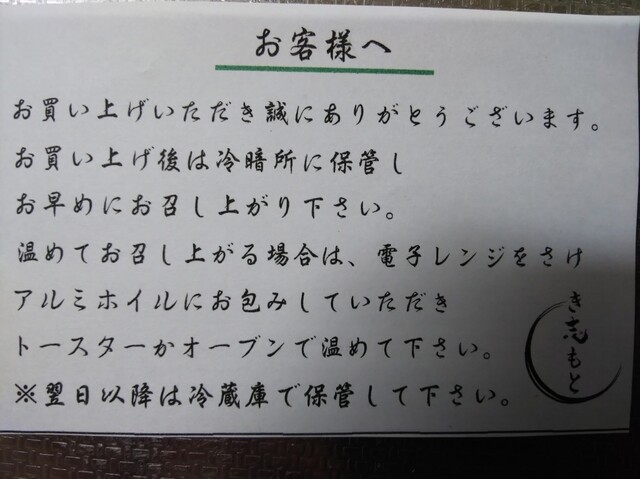 お客様へ
お買い上げいただき誠にありがとうございます。
お買い上げ後は冷暗所に保管し
お早めにお召し上がり下さい。
温めてお召し上がる場合は、電子レンジをさけ
アルミホイルにお包みしていただき
トースターかオーブンで温めて下さい。
※翌日以降は冷蔵庫で保管して下さい。
き志もと